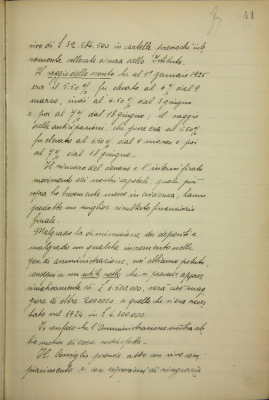 11
vivo di £ 32.584.500 in cartelle
mamente allocate a cura dello Istituto.
Il saggio dello sconto che al 1° gennaio 1925
era il 5.50 % fu elevato al 6 % dal 9
marzo, indi al 6.50 % dal 3 giugno
e poi al 7 % dal 18 giugno; il saggio
delle anticipazioni, che pure era al 5.50 %
fu elevato al 6.50 dal 9 marzo e poi
al 7 % dal 18 giugno.
Il rincaro del denaro e l'intensificato
movimento dei nostri sportelli, quale più
sopra lo abbiamo messo in evidenza, hanno
prodotto un miglior risultato finanziario
finale.
Malgrado la diminuzione dei depositi e
malgrado un qualche incremento nelle
spese di amministrazione, noi abbiamo potuto
conseguire un utile netto che si prevede appros
simativamente in £ 6.500.000, ossia mag
giore di oltre 200000 a quello che s'era accer
tato nel 1924 in £ 6.300.000
Io confido che l'Amministrazione
abbia motivo di essere soddisfatta.
Il Consiglio prende atto con vivo com
piacimento e con espressioni di ringrazia